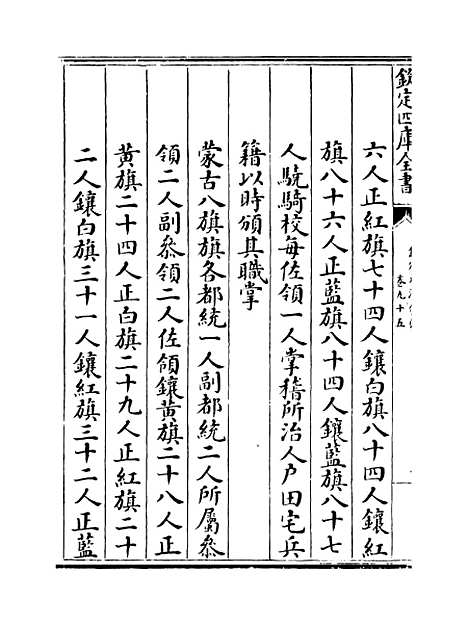 欽定四庫全書
卷九十五
六人正紅旗七十四人鑲白旗八十四人鑲紅
旗八十六人正藍旗八十四人鑲藍旗八十七
人驍騎校每佐領一人掌稽所治人戶田宅兵
籍以時頒其職掌
蒙古八旗旗各都統一人副都統二人所屬叅
領二人副叅領二人佐領鑲黃旗二十八人正
黃旗二十四人正白旗二十九人正紅旗二十
二人鑲白旗三十一人鑲紅旗三十二人正藍